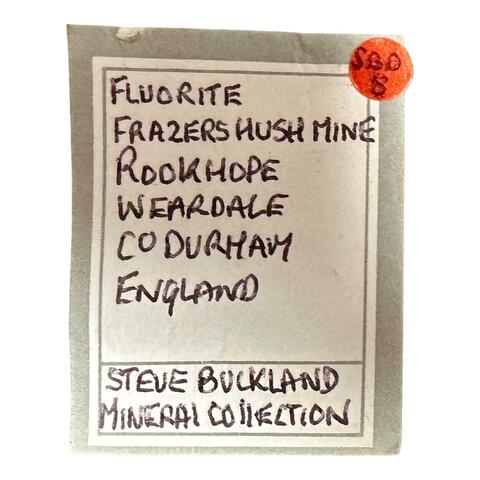 SBD
8
FLUORITE
FRAZERS HUSH MINE
ROOKHOPE
WEARDALE
CO DURHAM
ENGLAND
STEVE BUCKLAND
MINERAl COllECTION